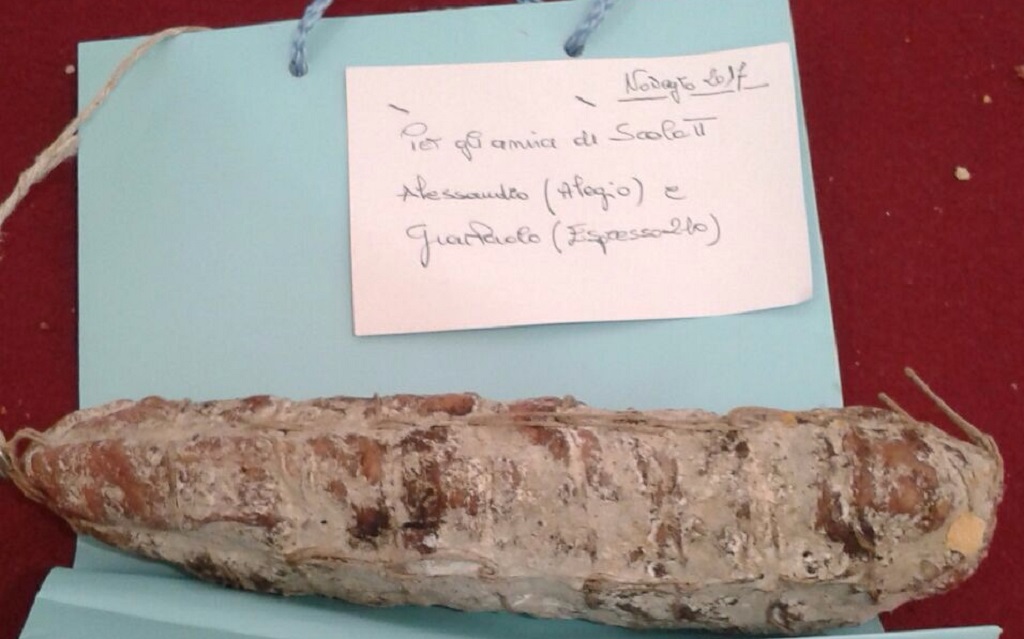 2017
Per gli amici di Scala II
Alessandro (Alegio) e
GianPaolo (Espresso 210)